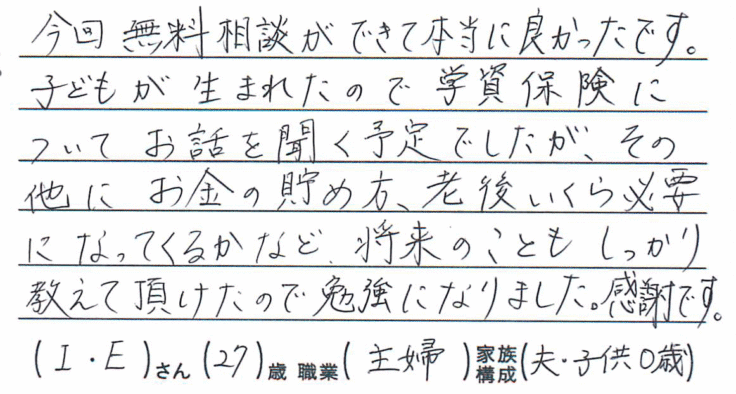 今回 無料相談ができて本当に良かったです。
子どもが 生まれたので 学資保険に
ついて お話を聞く予定でしたが、その
他に お金の貯め方、老後いくら必要
になってくるかなど、将来のことも しっかり
教えて頂けたので勉強になりました。感謝です。
(I・E)さん(27)歳 職業(主婦)家族構成(夫・子供0歳)